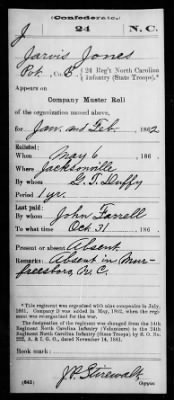 (Confederate.)
J 24 N.C.
Jarvis Jones
Pvt., Co. B, 24 Reg't North Carolina
Infantry (State Troops).*
Appears on
Company Muster Roll
of the organization named above,
for Jan. and Feb., 1862
Enlisted:
When May 6, 186
Where Jacksonville
By whom G. T. Duffy
Period 1 yr.
Last paid:
By whom John Farrell
To what time Oct. 31, 186
Present or absent Absent
Remarks: Absent in Mur-
freesboro N. C.
*This regiment was organized with nine companies in July,
1861. Company D was added in May, 1862, when the regi-
ment was reorganized.
The designation of the regiment was changed from the 14th
Regiment North Carolina Infantry (Volunteers) to the 24th
Regiment North Carolina Infantry (State Troops) by S. O. No.
222, A. & I. G. O., dated November 14, 1861.
Book mark:
J. P. Stirewalt
(642) Copyist.